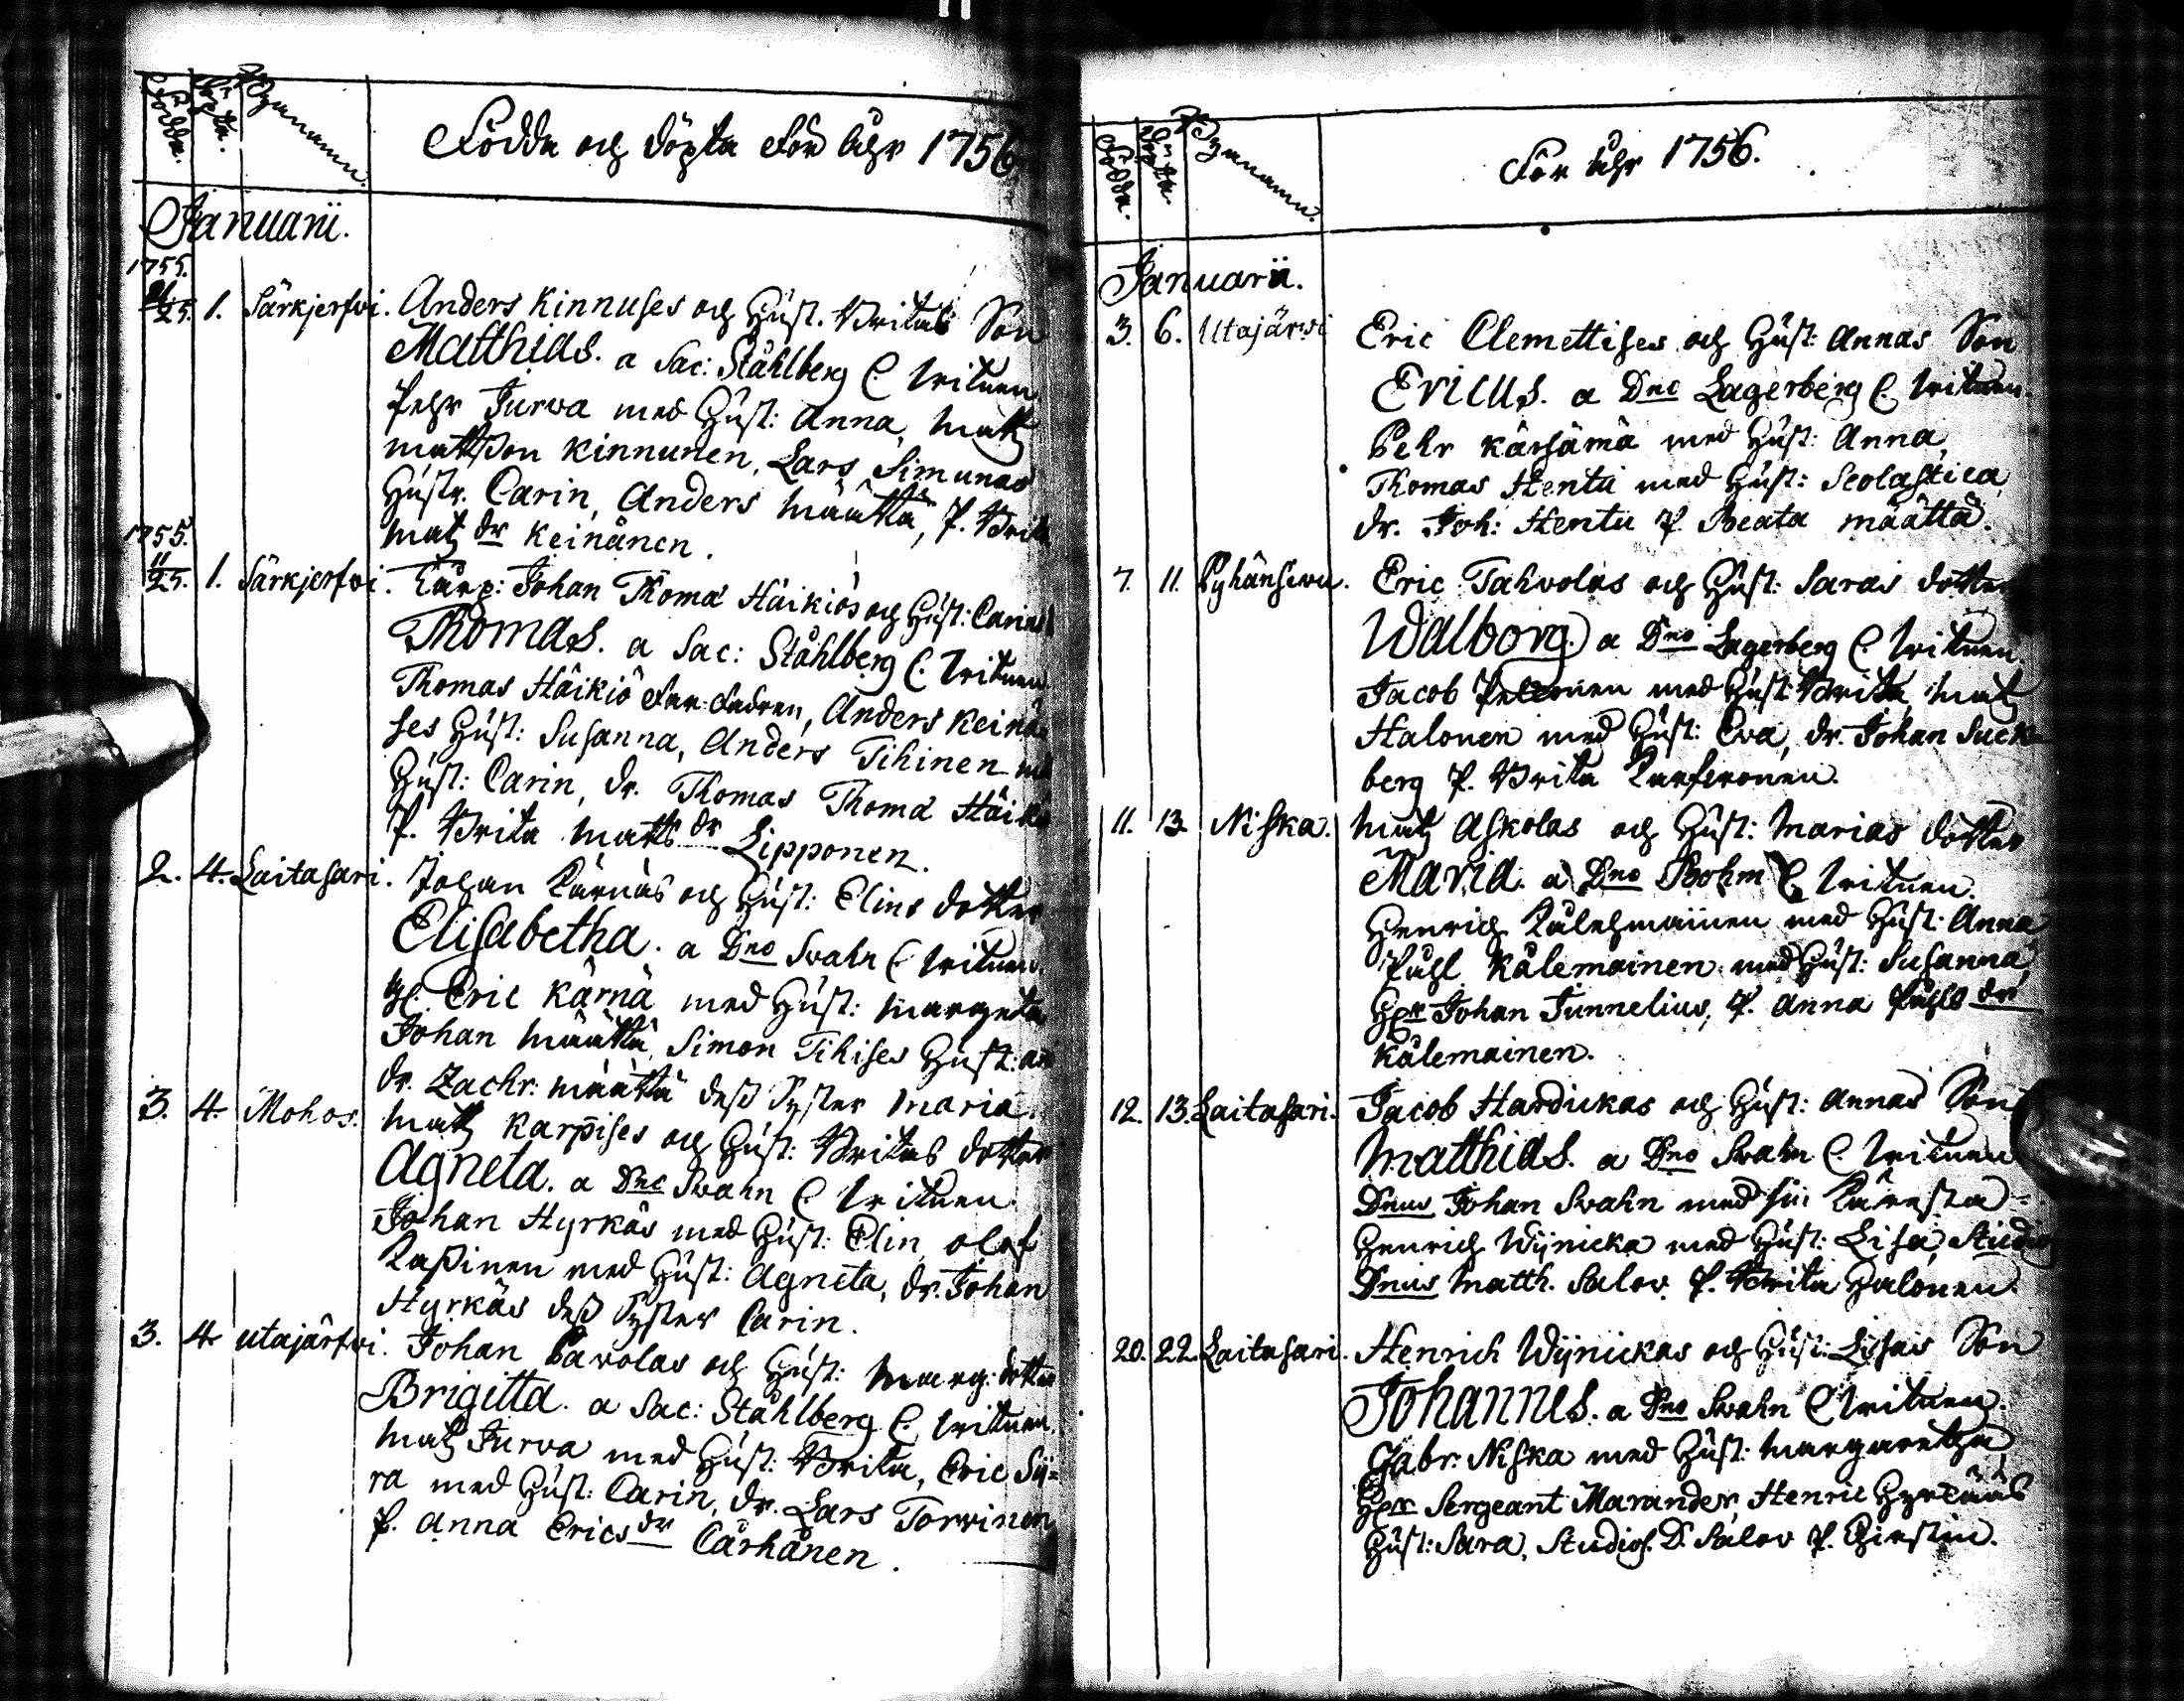 Födda
Döpta.
Bynamn.
Födda och döpta För åhr 1756.
Januarii.
1755.
21/25. 1. Särkjerfwi. Anders Kinnuses och Hust. Britas Son
Matthias. a Sac: Ståhlberg C. Writuen.
Pehr Jurva med Hust: Anna, Matz
Mattsson Kinnunen, Lars Simunas
Hustr. Carin, Anders Määttä, P. Brita
Matz dr Keinänen.
1755.
11/25. 1. Särkjerfwi. Torp: Johan Thoma Häikiös och Hust: Carins
Thomas. a Sac: Ståhlberg C. Writuen.
Thomas Häikiö Far Fadren, Anders Keinä-
ses Hust: Susanna, Anders Tihinen med
Hust: Carin, dr. Thomas Thoma Häikiö
P. Brita Matts dr Lipponen.
2. 4. Laitasari. Johan Kärnäs och Hust: Elins dotter
Elisabetha. a Dno Svahn C. Writuen.
Eric Kärnä med Hust: Margeta
Johan Määttä, Simon Tihises Hust:
dr. Zachr: Määttä dess Syster Maria.
3. 4. Mohos. Matz Karpises och Hust: Britas dotter
Agneta. a Dno Svahn C. Writuen.
Johan Hyrkäs med Hust: Elin, Olof
Kassinen med Hust: Agneta, dr. Johan
Hyrkäs dess Syster Carin.
3. 4. Utajärfwi. Johan Pavolas och Hust: Marg: dotter
Brigitta. a Sac: Ståhlberg C. Writuen.
Matz Jurva med Hust: Brita, Eric Sy=
ra med Hust: Carin, dr. Lars Torvinen
P. Anna Erics dr Cärhänen.
Födda.
Döpta.
Bynamn.
För åhr 1756.
Januarii.
3. 6. Utajärwi Eric Clemettises och Hust: Annas Son
Ericus. a Dno Lagerberg C. Writuen.
Pehr Kärsämä med Hust: Anna,
Thomas Hentu med Hust: Scolastica
dr. Joh: Hentu P. Beata Määttä.
7. 11. Pyhänsivu. Eric Tahvolas och Hust: Saras dotter
Walborg. a Dno Lagerberg C. Writuen.
Jacob Petronen med Hust: Brita, Matz
Halonen med Hust: Eva, dr. Johan Suck
berg P. Brita Karfvonen.
11. 13. Niska. Matz Askolas och Hust: Marias dotter
Maria. a Dno Bohm C. Writuen.
Henrich Kälehmainen med Hust: Anna
Påhl Kålemainen med Hust: Susanna,
Herr Johan Junnelius, P. Anna Påhls dr
Kålemainen.
12. 13. Laitasari. Jacob Hardukas och Hust: Annas Son
Matthias. a Dno Svahn C. Writuen
Dnus Johan Svahn med sin Käresta
Henrich Wijnicka med Hust: Lisa, Studios
Dnus Matth. Salov. P. Brita Halonen.
20. 22. Laitasari. Henrich Wijnickas och Hust: Lisas Son
Johannes. a Dno Svahn C. Writuen.
Gabr: Niska med Hust: Margaretha
Herr Sergeant Marander, Henric Hyrkäs
Hust: Sara, Studios. D. Salov P. Kirstin.